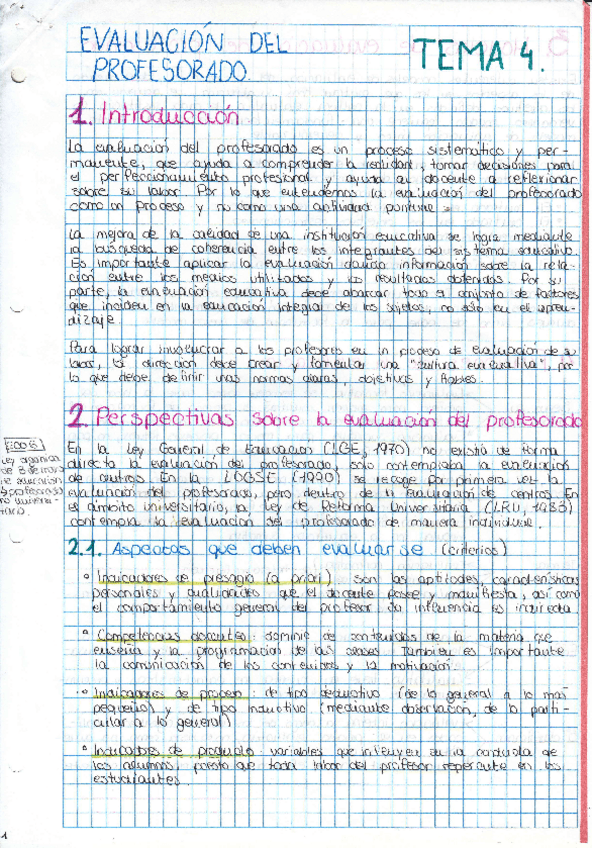 EVALUACIÓN DEL
PROFESORADO
TEMA 4.
1. Introducción
La evaluación del profesorado es un proceso sistemático y per-
manente, que ayuda a comprender la realidad, tomar decisiones para
el perfeccionamiento profesional y ayuda al docente a reflexionar
sobre su labor. Por lo que entendemos la evaluación del profesorado
como un proceso y no como una actividad puntual.
La mejora de la calidad de una institución educativa se logra mediante
la búsqueda de coherencia entre los integrantes del sistema educativo.
Es importante aplicar la evaluación dando información sobre la rela-
ción entre los medios utilizados y los resultados obtenidos. Por su
parte, la evaluación educativa debe abarcar todo el conjunto de factores
que inciden en la educación integral de los sujetos, no sólo en el apren-
dizaje.
Para lograr involucrar a los profesores en un proceso de evaluación de su
labor, la dirección debe crear y fomentar una "cultura evaluativa", por
lo que debe definir unas normas claras, objetivas y fiables.
2. Perspectivas sobre la evaluación del profesorado
En la Ley General de Educación (LGE, 1970) no existía de forma
directa la evaluación del profesorado, solo contemplaba la evaluación
de centros. En la LOGSE (1990) se recoge por primera vez la
evaluación del profesorado, pero dentro de la evaluación de centros. En
el ámbito universitario, la Ley de Reforma Universitaria (LRU, 1983)
contempla la evaluación del profesorado de manera individual.
Ley orgánica
de educación
profesorado
no universi-
tario.
2.1. Aspectos que deben evaluarse (criterios)
° Indicadores de presagio (a priori): son las aptitudes, características
personales y cualidades que el docente posee y manifiesta, así como
el comportamiento general del profesor. Su influencia es indirecta.
° Competencias docentes: dominio de contenidos de la materia que
enseña y la programación de las clases. También es importante
la comunicación de los contenidos y la motivación.
° Indicadores de proceso: de tipo deductivo (de lo general a lo más
pequeño) y de tipo inductivo (mediante observación, de lo parti-
cular a lo general)
° Indicadores de producto: variables que influyen en la conducta de
los alumnos, puesto que toda labor del profesor repercute en los
estudiantes.
1